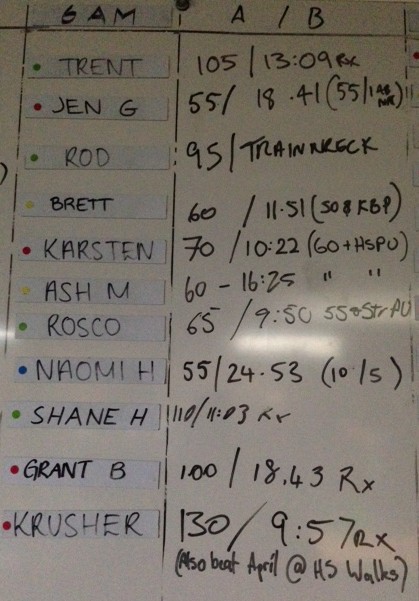 6 AM A / B
TRENT 105 / 13:09 Rx
JEN G 55/ 18.41 (55/
ROD 95 / TRAINWRECK
BRETT 60 / 11.51 (50 & KBP)
KARSTEN 70 / 10:22 (60 + HSPU)
ASH M 60 - 16:25 " "
ROSCO 65 / 9:50 55 Str PU
NAOMI H 55 / 24.53 (10/5)
SHANE H 110/11:03 Rx
GRANT B 100 / 18.43 Rx
KRUSHER 130 / 9:57 Rx
(Also beat April @ HS Walks)